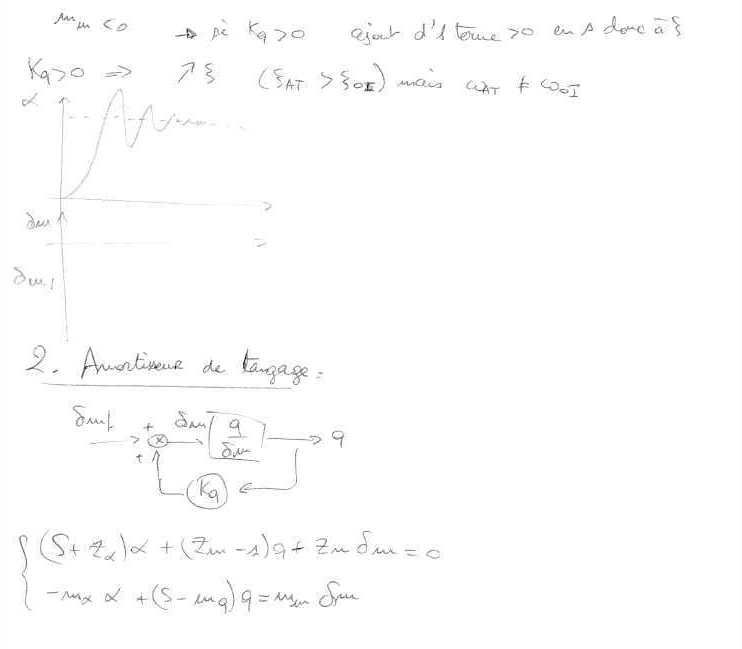 m_m < 0 → si Kq > 0 ajout d'1 terme > 0 en s donc à ξ
Kq > 0 ⇒ ↗ ξ (ξ_AT > ξ_OI) mais ω_AT ≠ ω_OI
α
δm
δm
2. Amortisseur de tangage :
δm + δm q/δm q
+
Kq
(S + Z_α) α + (Z_m - s) q + Z_m δm = 0
-m_α α + (S - m_q) q = m_δm δm